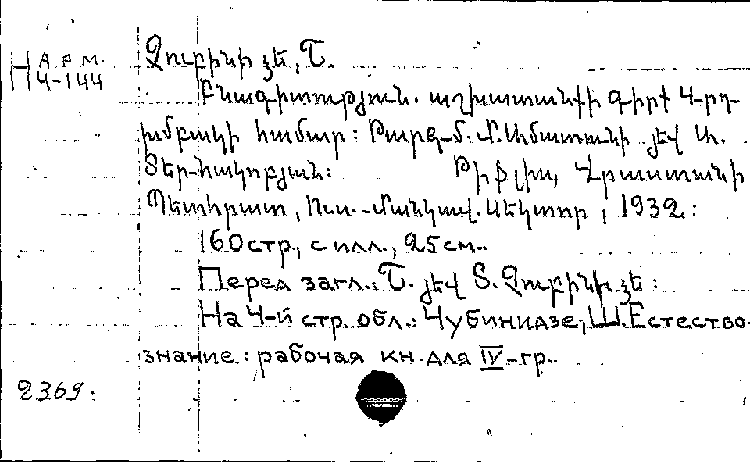 АРМ.
Н 4-144
Չուբինիձե, Շ.
Բնագիտություն. աշխատանքի գիրք 4-րդ
խմբակի համար: Թարգ-մ. Մ. Ամատունի յեվ Ա.
Տեր-հակոբյան: Թիֆլիս, Վրաստանի
Պետհրատ, Ուս.-մանկավ. սեկտոր, 1932:
160 стр., с илл., 25 см..
Перед загл.: Շ. յեվ Տ. Չուբինիձե:
На 4-й стр. обл.: Чубинидзе, Ш. Естество-
знание: рабочая кн. для IV-гр..
2369.